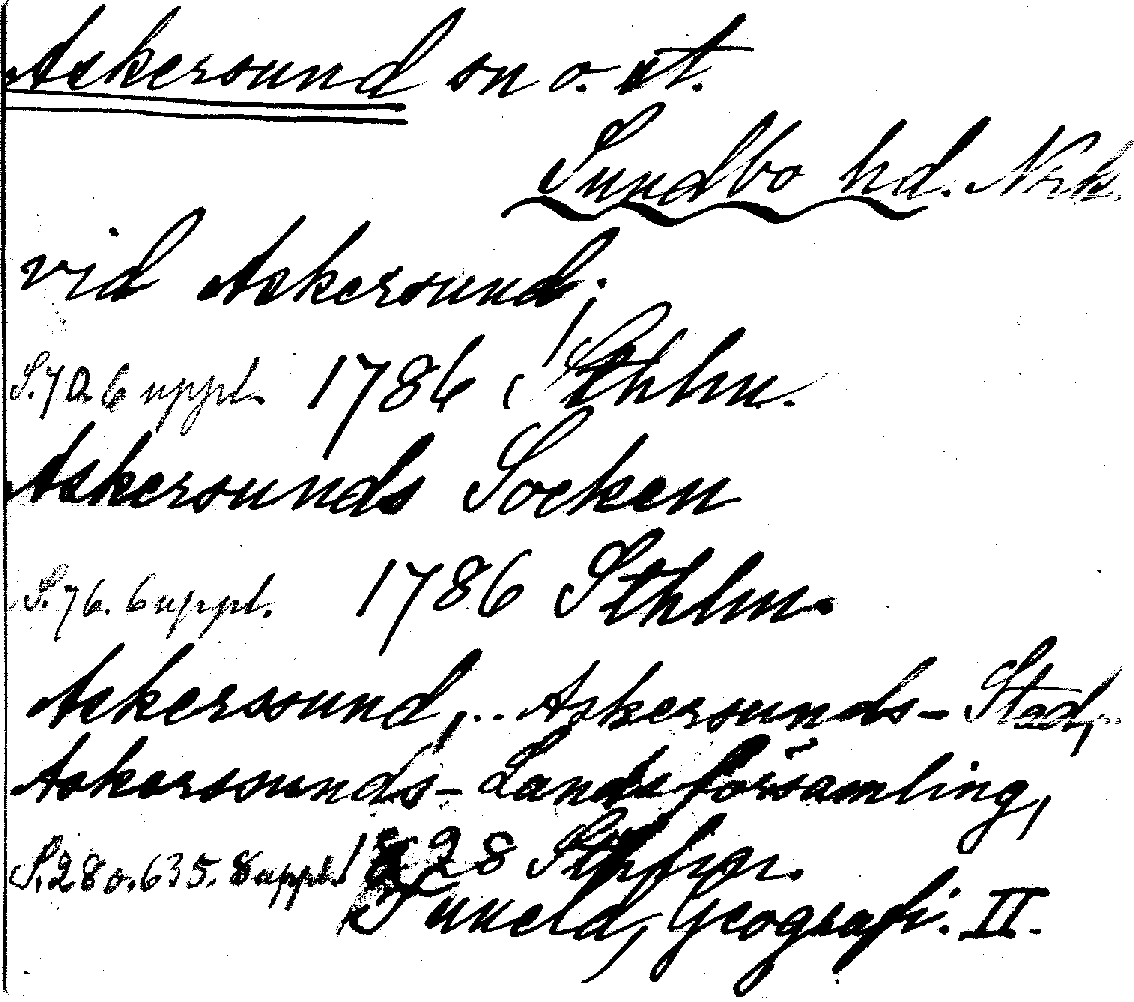 Askersund sn o. st.
Sundbo hd. Nrk.
vid Askersund;
S. 70. 6 uppl. 1786 Sthlm.
Askersunds Socken
S. 76. 6 uppl. 1786 Sthlm.
Askerssund, .. Askersunds-Stad,
Askerssunds-Landsförsamling,
S. 28 o. 635. 8 uppl. 1828 Sthlm.
Tuneld, Geografi. II.